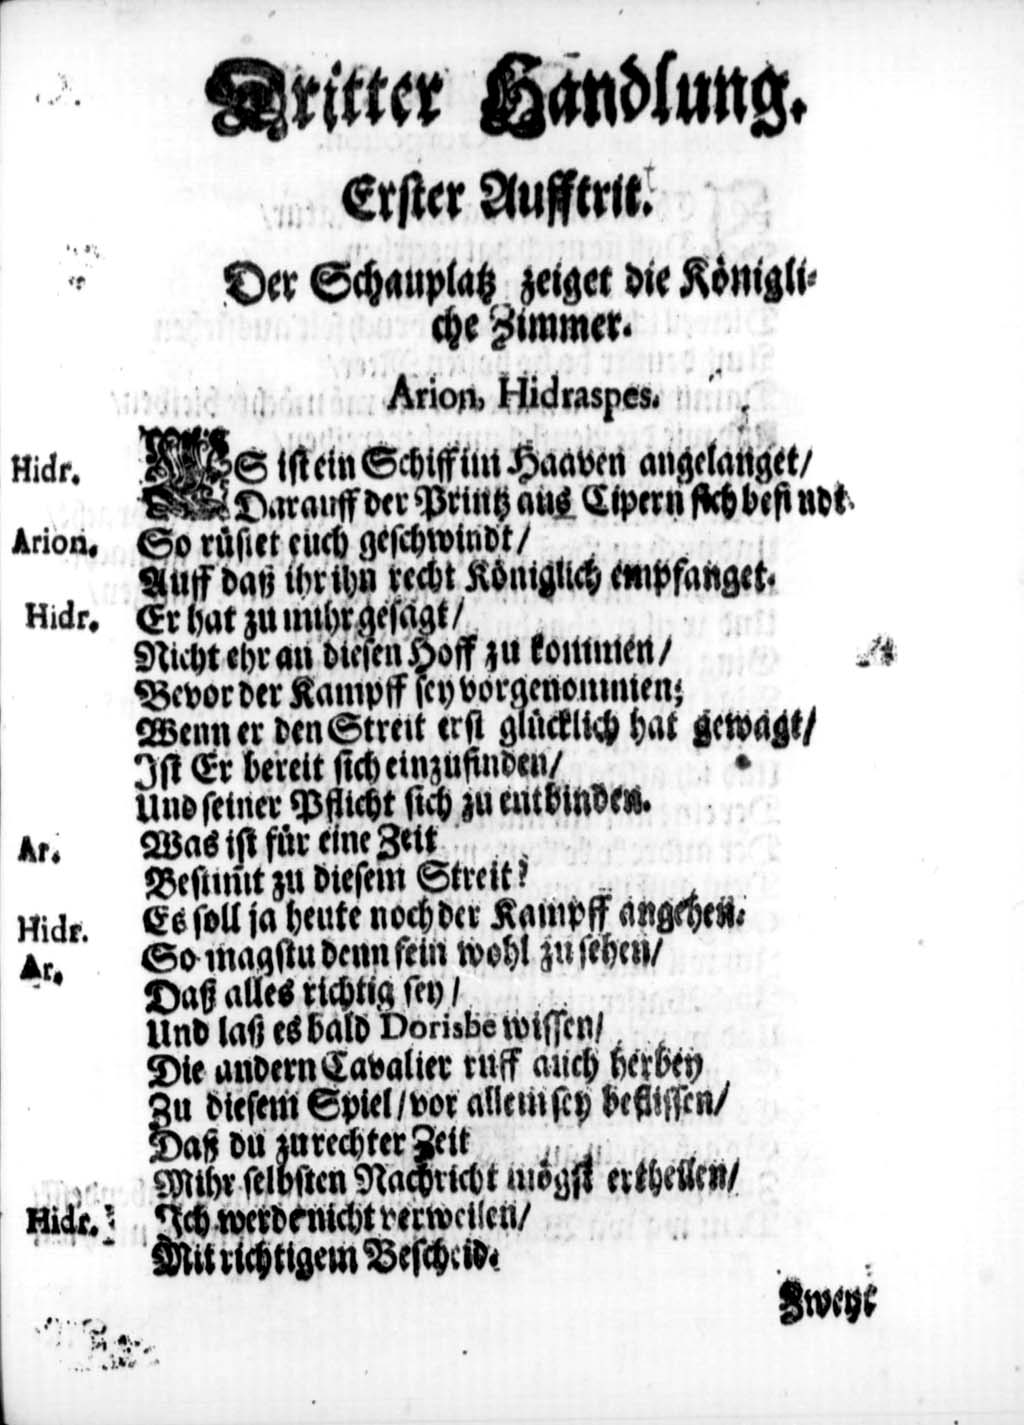 Dritter Handlung.
Erster Aufftrit.
Der Schauplatz zeiget die Königli-
che Zimmer.
Arion, Hidraspes.
Hidr. ES ist ein Schiff im Haaven angelanget/
Darauff der Printz aus Cipern sich befindt.
Arion. So rüstet euch geschwindt/
Auff daß ihr ihn recht Königlich empfanget.
Hidr. Er hat zu mihr gesagt/
Nicht ehr an diesen Hoff zu kommen/
Bevor der Kampff sey vorgenommen;
Wenn er den Streit erst glücklich hat gewagt/
Ist Er bereit sich einzufinden/
Und seiner Pflicht sich zu entbinden.
Ar. Was ist für eine Zeit
Bestimt zu diesem Streit?
Hidr. Es soll ja heute noch der Kampff angehen.
Ar. So magstu denn fein wohl zu sehen/
Daß alles richtig sey/
Und laß es bald Dorisbe wissen/
Die andern Cavalier ruff auch herbey
Zu diesem Spiel/ vor allem sey beflissen/
Daß du zu rechter Zeit
Mihr selbsten Nachricht mögst ertheilen/
Hidr. Ich werde nicht verweilen/
Mit richtigem Bescheid.
Zweyt